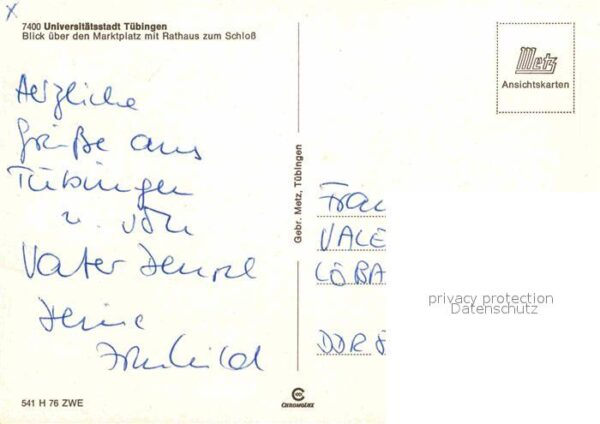 7400 Universitätsstadt Tübingen
Blick über den Marktplatz mit Rathaus zum Schloß
Metz
Ansichtskarten
Herzliche
Grüße aus
Tübingen
u. von
Vater
Gebr. Metz, Tübingen
Frau
VALE
LÖBA
DDR
privacy protection
Datenschutz
541 H 76 ZWE
CHROMOLUX